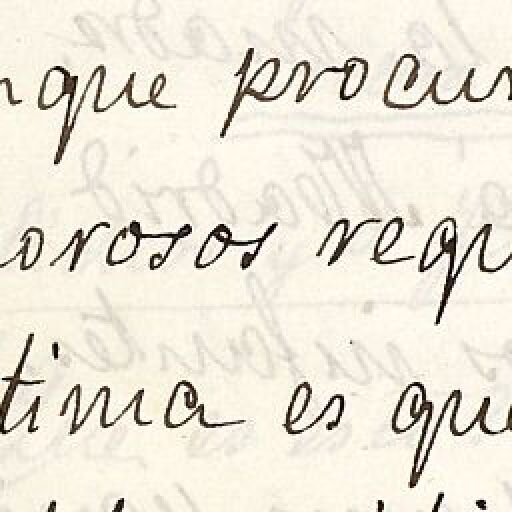 nque procur
orosos requ
tima es que